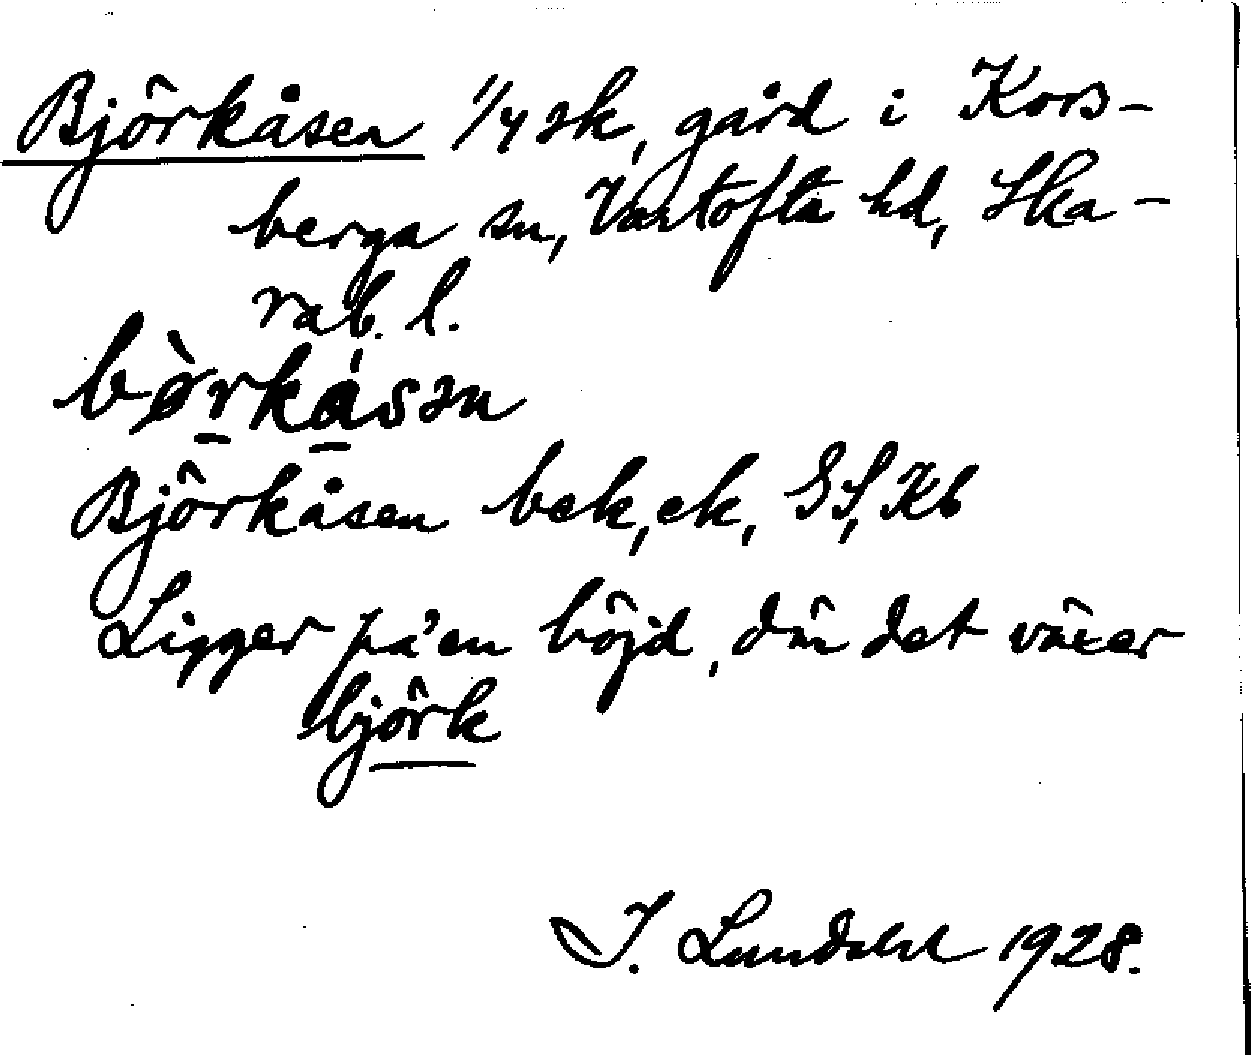 Björkåsen 1/4 sk, gård i Kors-
berga sn, Vartofta hd, Ska-
rab. l.
bø̀rkåsən
Björkåsen bek, ek, GS, Kb
Ligger på en höjd, där det växer
björk
I. Lundahl 1928.